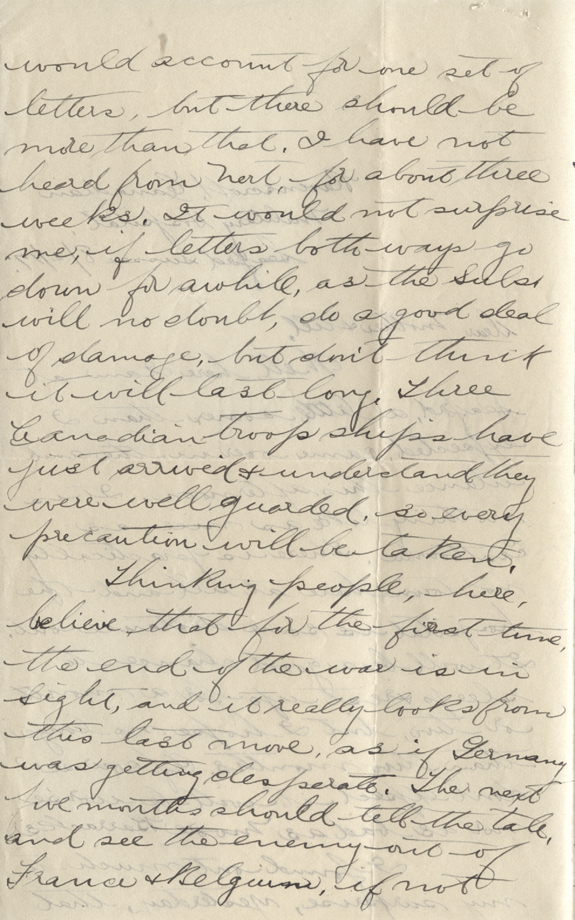 would account for one set of
letters, but there should be
more than that. I have not
heard from Nert, for about three
weeks. It would not surprise
me, if letters both ways go
down for awhile, as the Subs
will no doubt, do a good deal
of damage, but don't think
it will last long. Three
Canadian troop ships have
just arrived & understand they
were well guarded, so every
precaution will be taken.
Thinking people, here,
believe, that for the first time,
the end of the war is in
sight, and it really looks from
this last move, as if Germany
was getting desperate. The next
five months should tell the tale,
and see the enemy out of
France & Belgium, if not